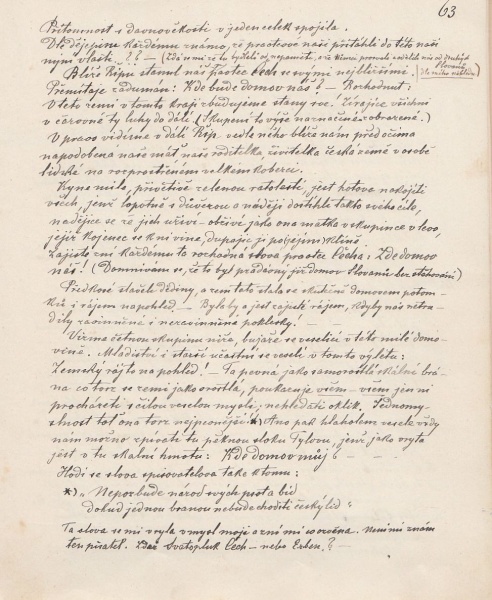 63
Přítomnost s davnověkostí v jeden celek spojila.
Dle dějepisu každému známo, že praotcové naši přitáhli do této naší
nyní vlasti ? ? — (Zdá se mi že tu bydleli od nepaměti,
Blíže Řípu stanul náš praotec Čech se svými nejbližšími.
Přemítaje rádumam: Kde bude domov náš? — Rozhodnut:
V této zemi v tomto kraji zbudujeme stany své. Zírajíce všichni
v čarovné ty luhy do dáli! (Skupení to výše naznačené zobrazené.)
V pravo vidíme v dáli Říp, vedle něho blíže nám před očima
napodobena naše máť naše roditelka, živitelka česká země v osobě
lidské na rozprostřeném velkém koberci.
Kyne mile, přívětivě zelenou ratolestí, jest hotova nakojiti
všech, jenž lopotně s důvěrou a nadějí dostihli takto svého cíle,
nadějíce se že jich uživí
jejíž kojenec se k ní vine,
Zajisté zní každému to rozhodná slova praotce Čecha: Zde domov
náš! (Domnívám se, že to byl pradávný již domov Slovanů bez stěhování)
Předkové stavěli dědiny, a zem tato stala se skutečně domovem potom-
ků i rájem na pohled — Byla by, a jest zajisté rájem, kdyby nás netra-
pily zaviněné i nezaviněné poklésky. —
Vizme četnou skupinu níže, bujaře se veselící v této milé domo-
vině. Mládiství i starší účastní se veselí v tomto výletu:
Zemský ráj to na pohled! — Ta pevná jako samorostlá skalní brá-
na co tvrz se zemí jako srostlá, poukazuje všem — všem jen ní
procházeti s čilou veselou myslí, nehledati oklik. Jednomy-
slnost toť ona tvrz nejpevnější! *) Ano pak hlaholem vesele vždy
nám možno zpívati tu pěknou sloku Tylovu, jenž jako vryta
jest v tu skalní hmotu: Kde domov můj
Hodí se slova spisovatelova také k tomu:
*) „Nepozbude národ svých práv a bid
dokud jednou branou nebude choditi český lid"
Ta slova se mi vryla v mysl moji a zní mi Není mi znám
ten pisatel. Zdaž Svatopluk Čech — nebo Erben. ? —